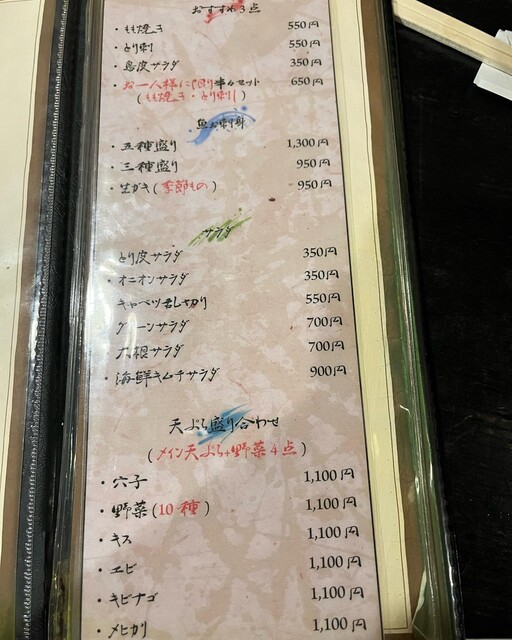 おすすめ3点
・もも焼き 550円
・とり刺 550円
・鳥皮サラダ 350円
・お一人様に限り セット 650円
(もも焼き・とり刺)
魚お刺身
・五種盛り 1,300円
・三種盛り 950円
・生ガキ(季節もの) 950円
サラダ
・とり皮サラダ 350円
・オニオンサラダ 350円
・キャベツ乱切り 550円
・グリーンサラダ 700円
・大根サラダ 700円
・海鮮キムチサラダ 900円
天ぷら盛り合わせ
(メイン天ぷら+野菜4点)
・穴子 1,100円
・野菜(10種) 1,100円
・キス 1,100円
・エビ 1,100円
・キビナゴ 1,100円
・メヒカリ 1,100円